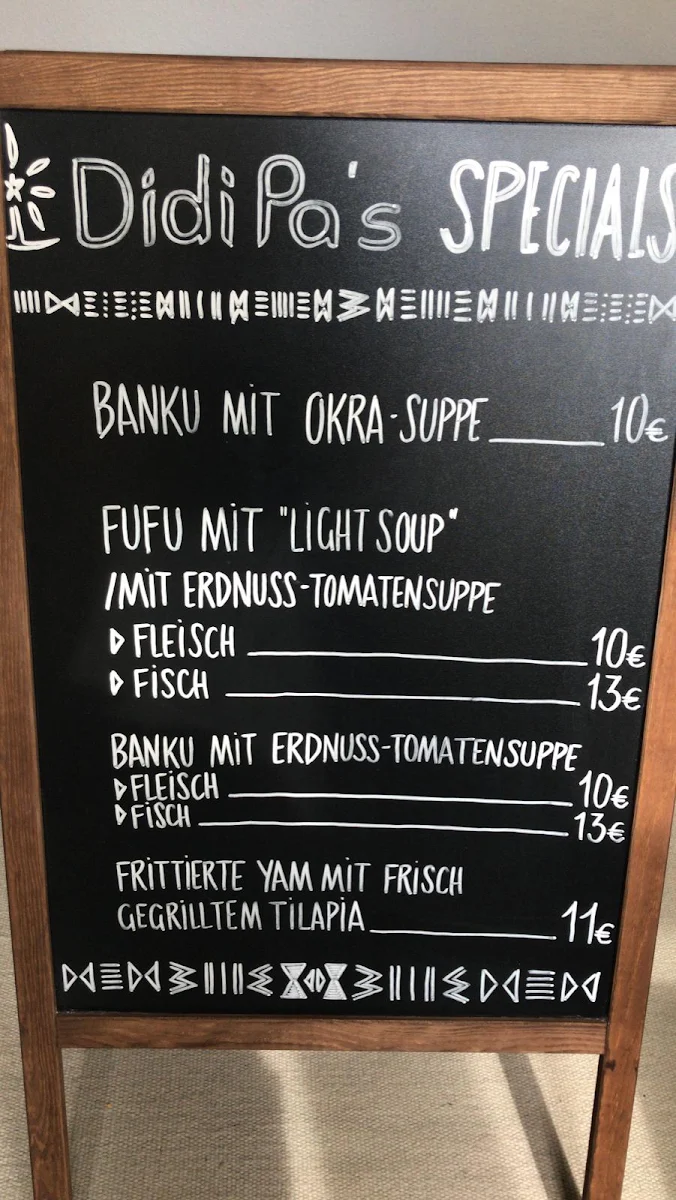 Didi Pa's SPECIALS
BANKU MIT OKRA-SUPPE 10€
FUFU MIT "LIGHT SOUP"
/MIT ERDNUSS-TOMATENSUPPE
▷ FLEISCH 10€
▷ FISCH 13€
BANKU MIT ERDNUSS-TOMATENSUPPE
▷ FLEISCH 10€
▷ FISCH 13€
FRITTIERTE YAM MIT FRISCH
GEGRILLTEM TILAPIA 11€